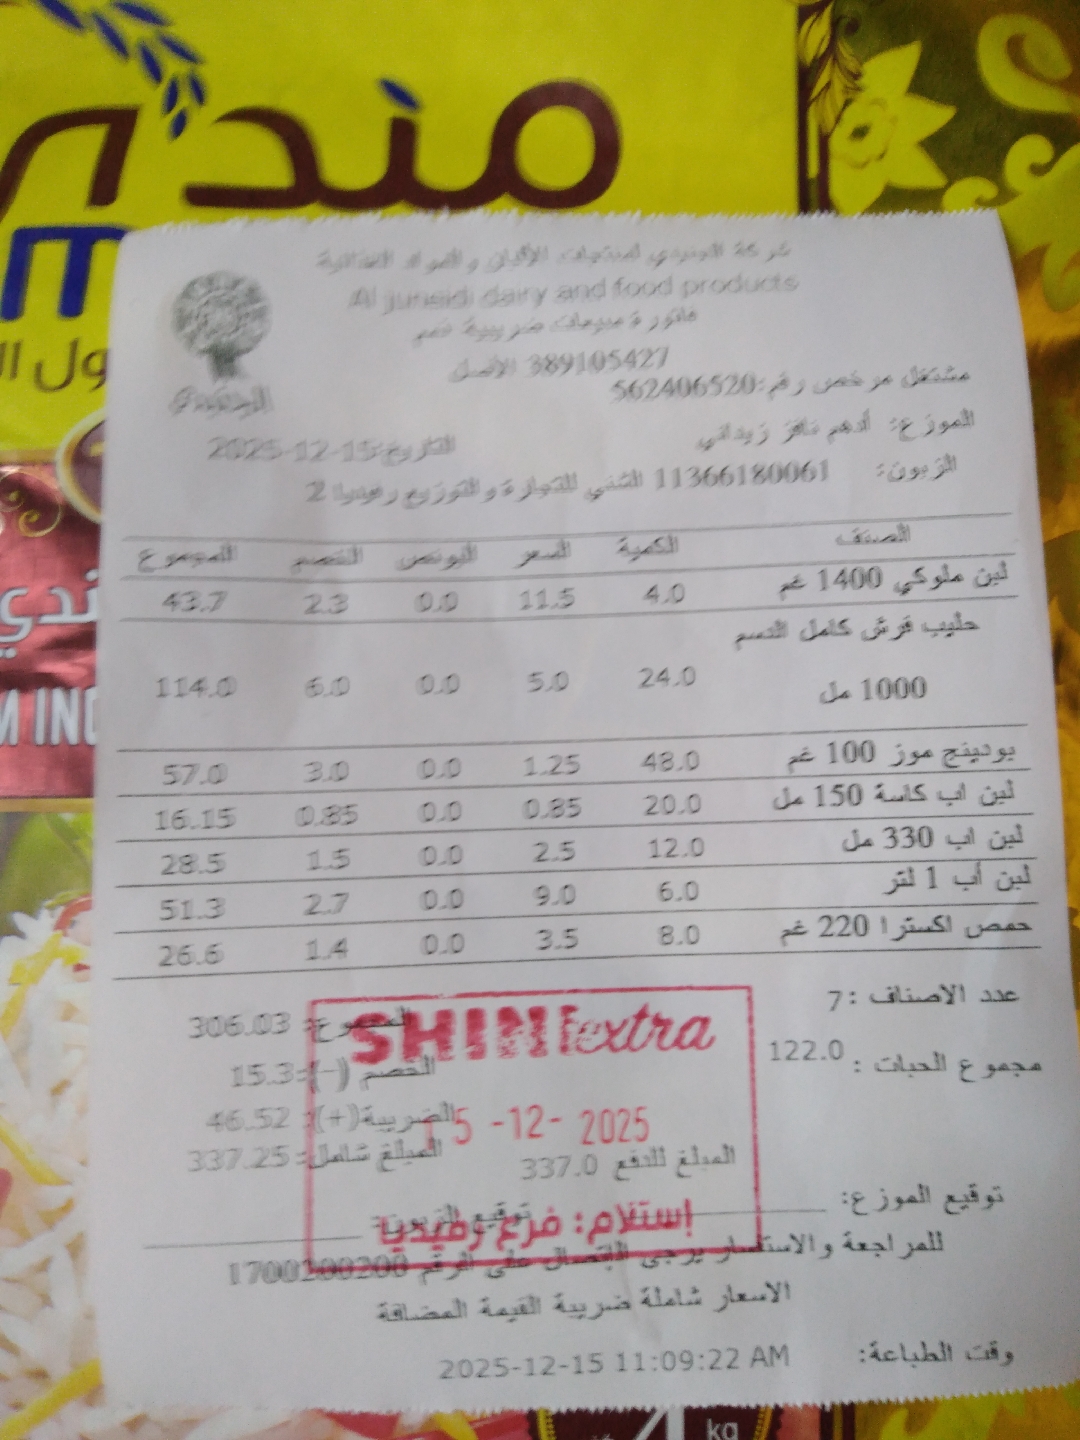 مندي
ول ال
ندي
M IND
شركة الجنيدي لمنتجات الألبان والمواد الغذائية
Al juneidi dairy and food products
فاتورة مبيعات ضريبية
389105427 الأصل
مشتغل مرخص رقم:562406520
الجنيدي
الموزع: أدهم زيداني
التاريخ:2025-12-15
الزبون: 11366180061 الشني للتجارة والتوزيع رفيديا 2
الصنف الكمية السعر البونص الخصم المجموع
لبن ملوكي 1400 غم 4.0 11.5 0.0 2.3 43.7
حليب فرش كامل الدسم
1000 مل 24.0 5.0 0.0 6.0 114.0
بودينج موز 100 غم 48.0 1.25 0.0 3.0 57.0
لبن اب كاسة 150 مل 20.0 0.85 0.0 0.85 16.15
لبن اب 330 مل 12.0 2.5 0.0 1.5 28.5
لبن أب 1 لتر 6.0 9.0 0.0 2.7 51.3
حمص اكسترا 220 غم 8.0 3.5 0.0 1.4 26.6
عدد الاصناف :7
المجموع: 306.03
SHINI extra
مجموع الحبات : 122.0
الخصم (-):15.3
الضريبة(+): 46.52
15 -12- 2025
المبلغ شامل: 337.25
المبلغ للدفع 337.0
توقيع الموزع:
توقيع الزبون:
إستلام: فرع رفيديا
للمراجعة والاستفسار يرجى الاتصال على الرقم 1700200200
الاسعار شاملة ضريبة القيمة المضافة
وقت الطباعة: 2025-12-15 11:09:22 AM
4 kg